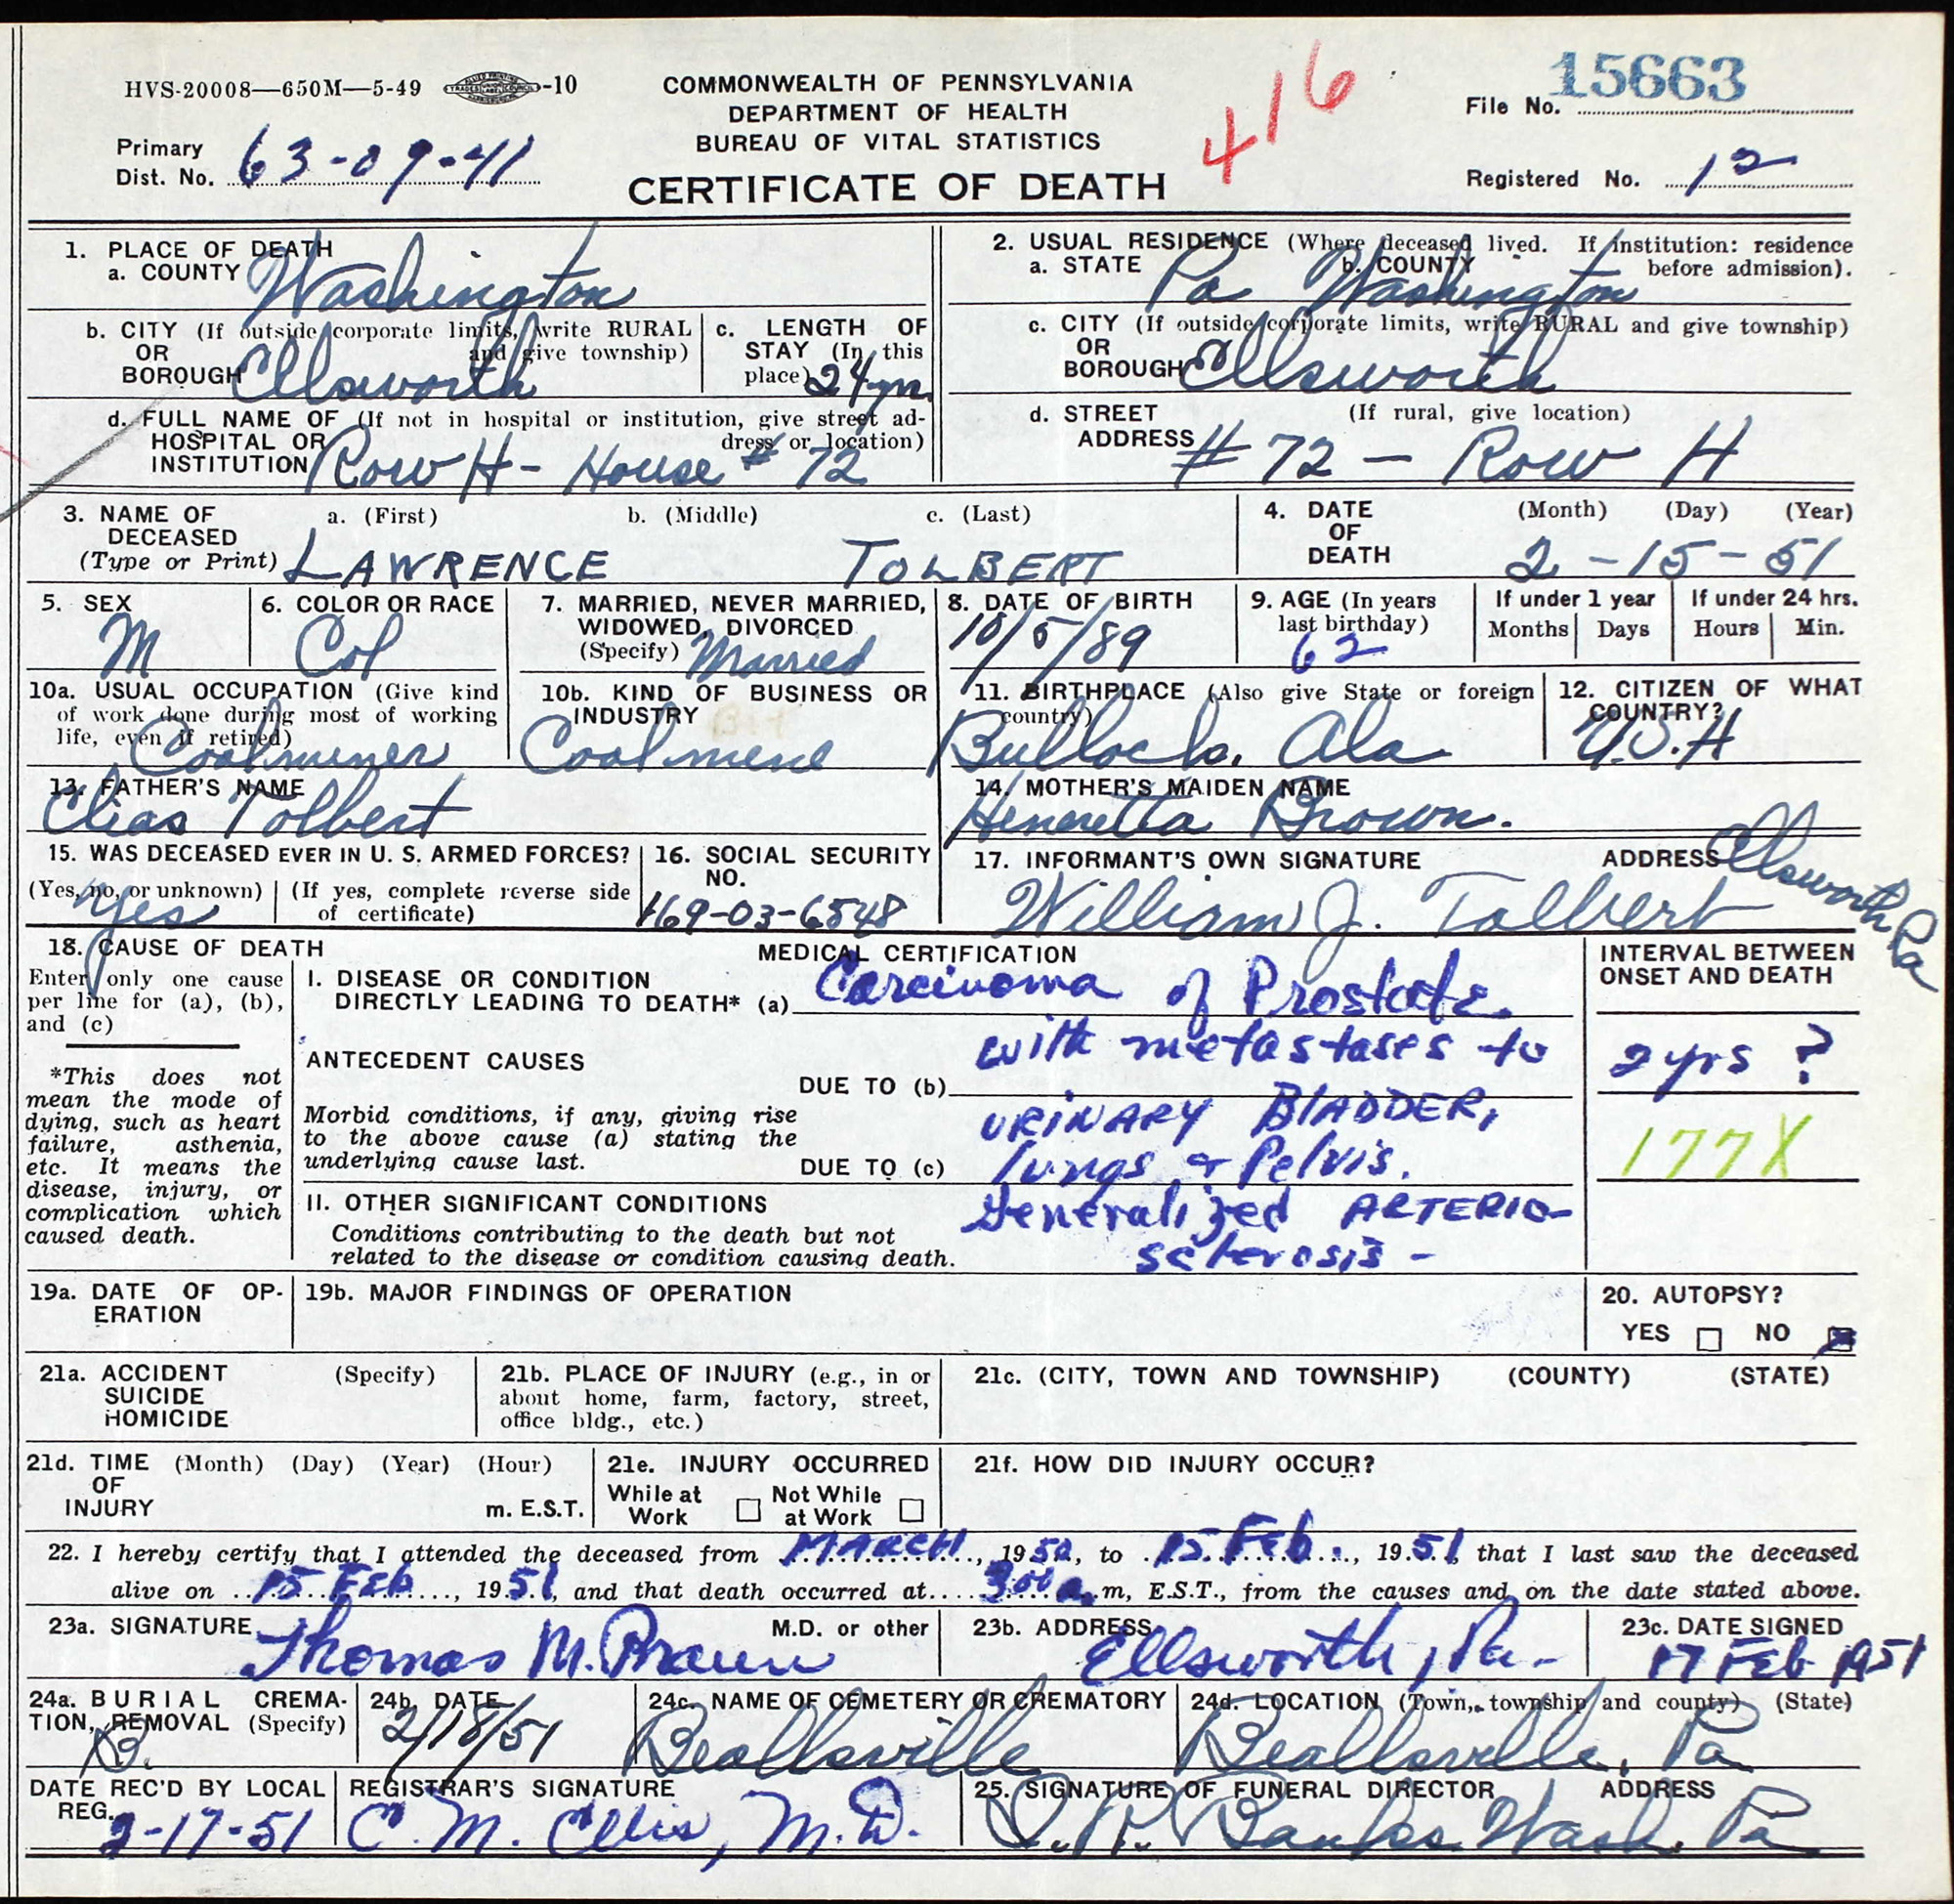 HVS-20008—650M—5-49 -10
COMMONWEALTH OF PENNSYLVANIA
DEPARTMENT OF HEALTH
BUREAU OF VITAL STATISTICS
CERTIFICATE OF DEATH
416
File No. 15663
Primary
Dist. No. 63-09-41
Registered No. 12
1. PLACE OF DEATH
a. COUNTY Washington
b. CITY (If outside corporate limits, write RURAL
OR and give township)
BOROUGH Ellsworth
c. LENGTH OF
STAY (In this
place) 24 yrs.
d. FULL NAME OF (If not in hospital or institution, give street ad-
HOSPITAL OR dress or location)
INSTITUTION Row H - House # 72
2. USUAL RESIDENCE (Where deceased lived. If institution: residence
a. STATE Pa b. COUNTY Washington before admission).
c. CITY (If outside corporate limits, write RURAL and give township)
OR
BOROUGH Ellsworth
d. STREET (If rural, give location)
ADDRESS # 72 — Row H
3. NAME OF a. (First) b. (Middle) c. (Last)
DECEASED
(Type or Print) LAWRENCE TOLBERT
4. DATE (Month) (Day) (Year)
OF
DEATH 2-15-51
5. SEX
M
6. COLOR OR RACE
Col
7. MARRIED, NEVER MARRIED,
WIDOWED, DIVORCED
(Specify) Married
8. DATE OF BIRTH
10/5/89
9. AGE (In years
last birthday)
62
If under 1 year
Months Days
If under 24 hrs.
Hours Min.
10a. USUAL OCCUPATION (Give kind
of work done during most of working
life, even if retired)
Coalminer
10b. KIND OF BUSINESS OR
INDUSTRY
Coalmine
11. BIRTHPLACE (Also give State or foreign
country)
Bullock, Ala
12. CITIZEN OF WHAT
COUNTRY?
U.S.A
13. FATHER'S NAME
Elias Tolbert
14. MOTHER'S MAIDEN NAME
Henrietta Brown.
15. WAS DECEASED EVER IN U. S. ARMED FORCES?
(Yes, no, or unknown) (If yes, complete reverse side
of certificate)
Yes
16. SOCIAL SECURITY
NO.
169-03-6548
17. INFORMANT'S OWN SIGNATURE ADDRESS Ellsworth Pa
William J. Tolbert
18. CAUSE OF DEATH
Enter only one cause
per line for (a), (b),
and (c)
*This does not
mean the mode of
dying, such as heart
failure, asthenia,
etc. It means the
disease, injury, or
complication which
caused death.
MEDICAL CERTIFICATION
I. DISEASE OR CONDITION
DIRECTLY LEADING TO DEATH* (a) Carcinoma of Prostate
with metastases to
ANTECEDENT CAUSES
DUE TO (b)
URINARY BLADDER,
Morbid conditions, if any, giving rise
to the above cause (a) stating the
underlying cause last.
DUE TO (c) lungs & Pelvis.
II. OTHER SIGNIFICANT CONDITIONS
Generalized ARTERIO-
Conditions contributing to the death but not
related to the disease or condition causing death.
sclerosis -
INTERVAL BETWEEN
ONSET AND DEATH
2 yrs ?
177X
19a. DATE OF OP-
ERATION
19b. MAJOR FINDINGS OF OPERATION
20. AUTOPSY?
YES NO
21a. ACCIDENT (Specify)
SUICIDE
HOMICIDE
21b. PLACE OF INJURY (e.g., in or
about home, farm, factory, street,
office bldg., etc.)
21c. (CITY, TOWN AND TOWNSHIP) (COUNTY) (STATE)
21d. TIME (Month) (Day) (Year) (Hour)
OF
INJURY m. E.S.T.
21e. INJURY OCCURRED
While at Not While
Work at Work
21f. HOW DID INJURY OCCUR?
22. I hereby certify that I attended the deceased from MARCH, 1950, to 15 Feb., 1951, that I last saw the deceased
alive on 15 Feb, 1951, and that death occurred at 3:00 a. m, E.S.T., from the causes and on the date stated above.
23a. SIGNATURE M.D. or other
Thomas M.
23b. ADDRESS
Ellsworth, Pa.
23c. DATE SIGNED
17 Feb 1951
24a. BURIAL CREMA-
TION, REMOVAL (Specify)
B.
24b. DATE
2/18/51
24c. NAME OF CEMETERY OR CREMATORY
Beallsville
24d. LOCATION (Town, township and county) (State)
Beallsville, Pa
DATE REC'D BY LOCAL
REG.
2-17-51
REGISTRAR'S SIGNATURE
C. M. Ellis, M.D.
25. SIGNATURE OF FUNERAL DIRECTOR ADDRESS
Banks Wash. Pa